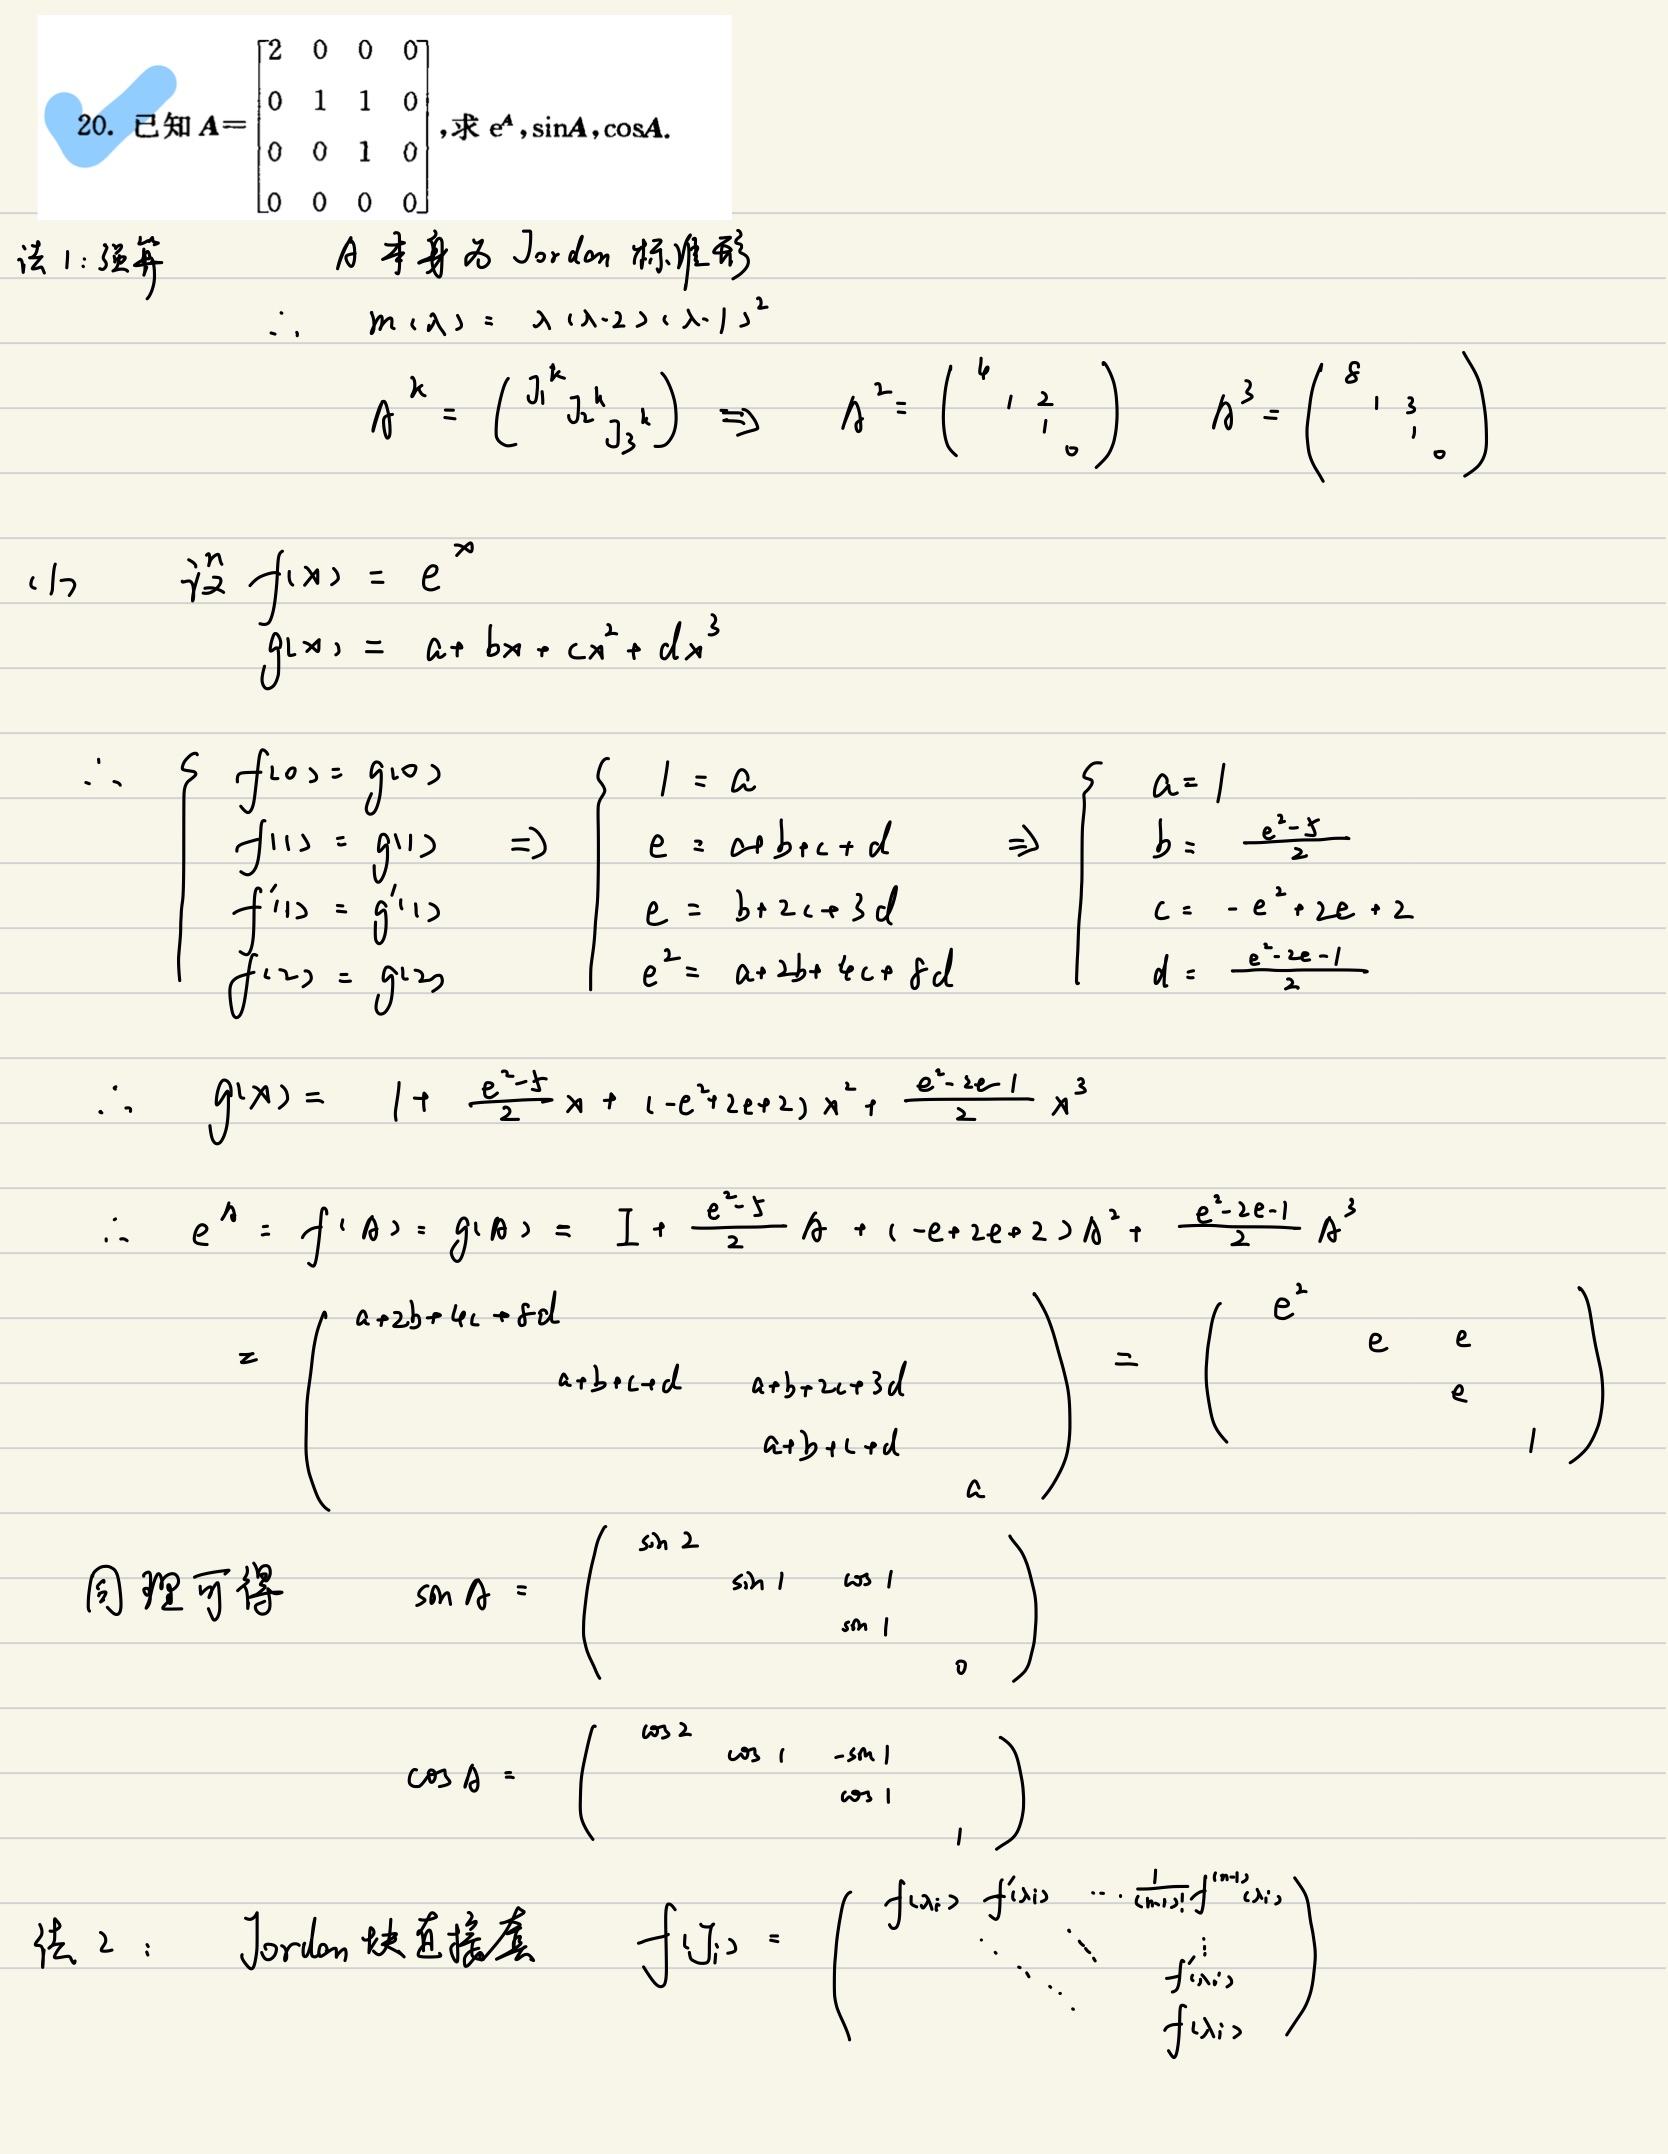 20. 已知 A= [2 0 0 0; 0 1 1 0; 0 0 1 0; 0 0 0 0] ,求 e^A, sinA, cosA.
法1:强算 A 本身为 Jordan 标准形
∴ m(λ) = λ(λ-2)(λ-1)^2
A^k = (J_1^k J_2^k J_3^k) ⇒ A^2 = (4; 1 2; 1; 0) A^3 = (8; 1 3; 1; 0)
(1) 设 f(x) = e^x
g(x) = a+bx+cx^2+dx^3
∴ { f(0) = g(0) { 1 = a { a = 1
f(1) = g(1) ⇒ e = a+b+c+d ⇒ b = (e^2-5)/2
f'(1) = g'(1) e = b+2c+3d c = -e^2+2e+2
f(2) = g(2) e^2 = a+2b+4c+8d d = (e^2-2e-1)/2
∴ g(x) = 1 + (e^2-5)/2 x + (-e^2+2e+2)x^2 + (e^2-2e-1)/2 x^3
∴ e^A = f(A) = g(A) = I + (e^2-5)/2 A + (-e+2e+2)A^2 + (e^2-2e-1)/2 A^3
= (a+2b+4c+8d; a+b+c+d a+b+2c+3d; a+b+c+d; a) = (e^2; e e; e; 1)
同理可得 sinA = (sin2; sin1 cos1; sin1; 0)
cosA = (cos2; cos1 -sin1; cos1; 1)
法2: Jordan 块直接套 f(J_i) = (f(λ_i) f'(λ_i) ... 1/(m-1)! f^(m-1)(λ_i); ⋱ ⋱ ⋮; f'(λ_i); f(λ_i))